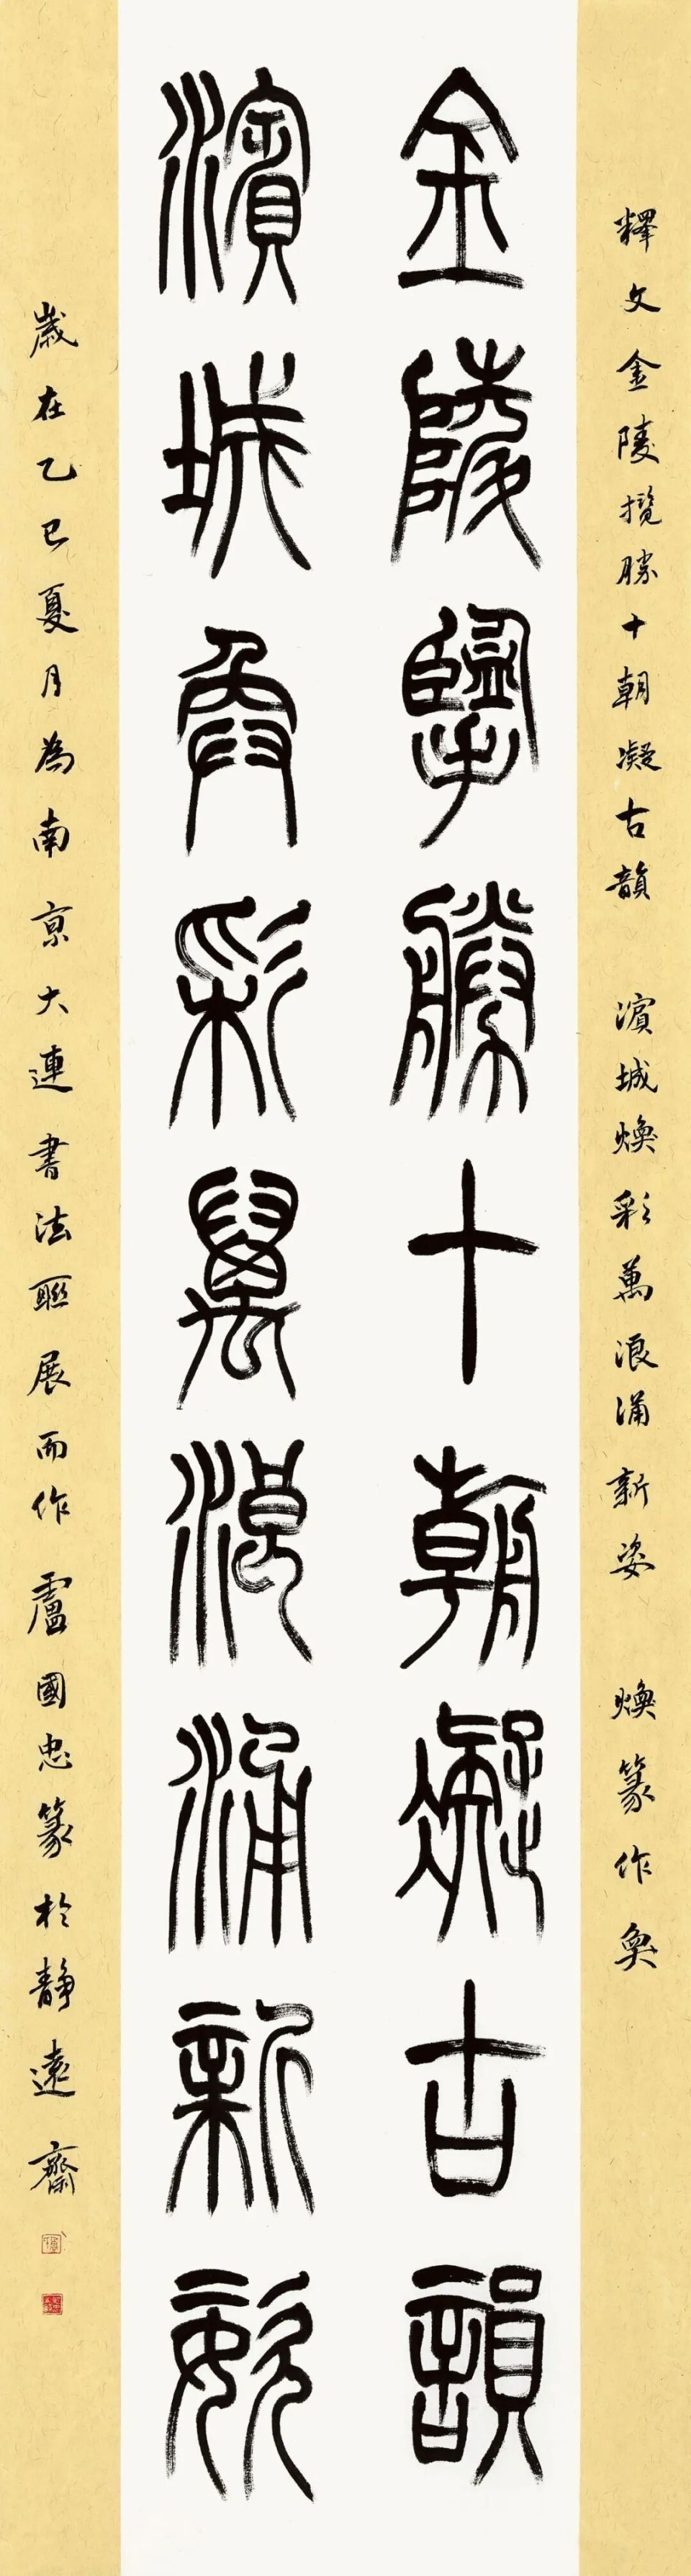 釋文金陵攬勝十朝凝古韻 濱城煥彩萬浪涌新姿 煥篆作奐
金陵擥勝十朝凝古韻
濱城奐彩萬浪涌新姿
歲在乙巳夏月為南京大連書法聯展而作盧國忠篆於靜遠齋